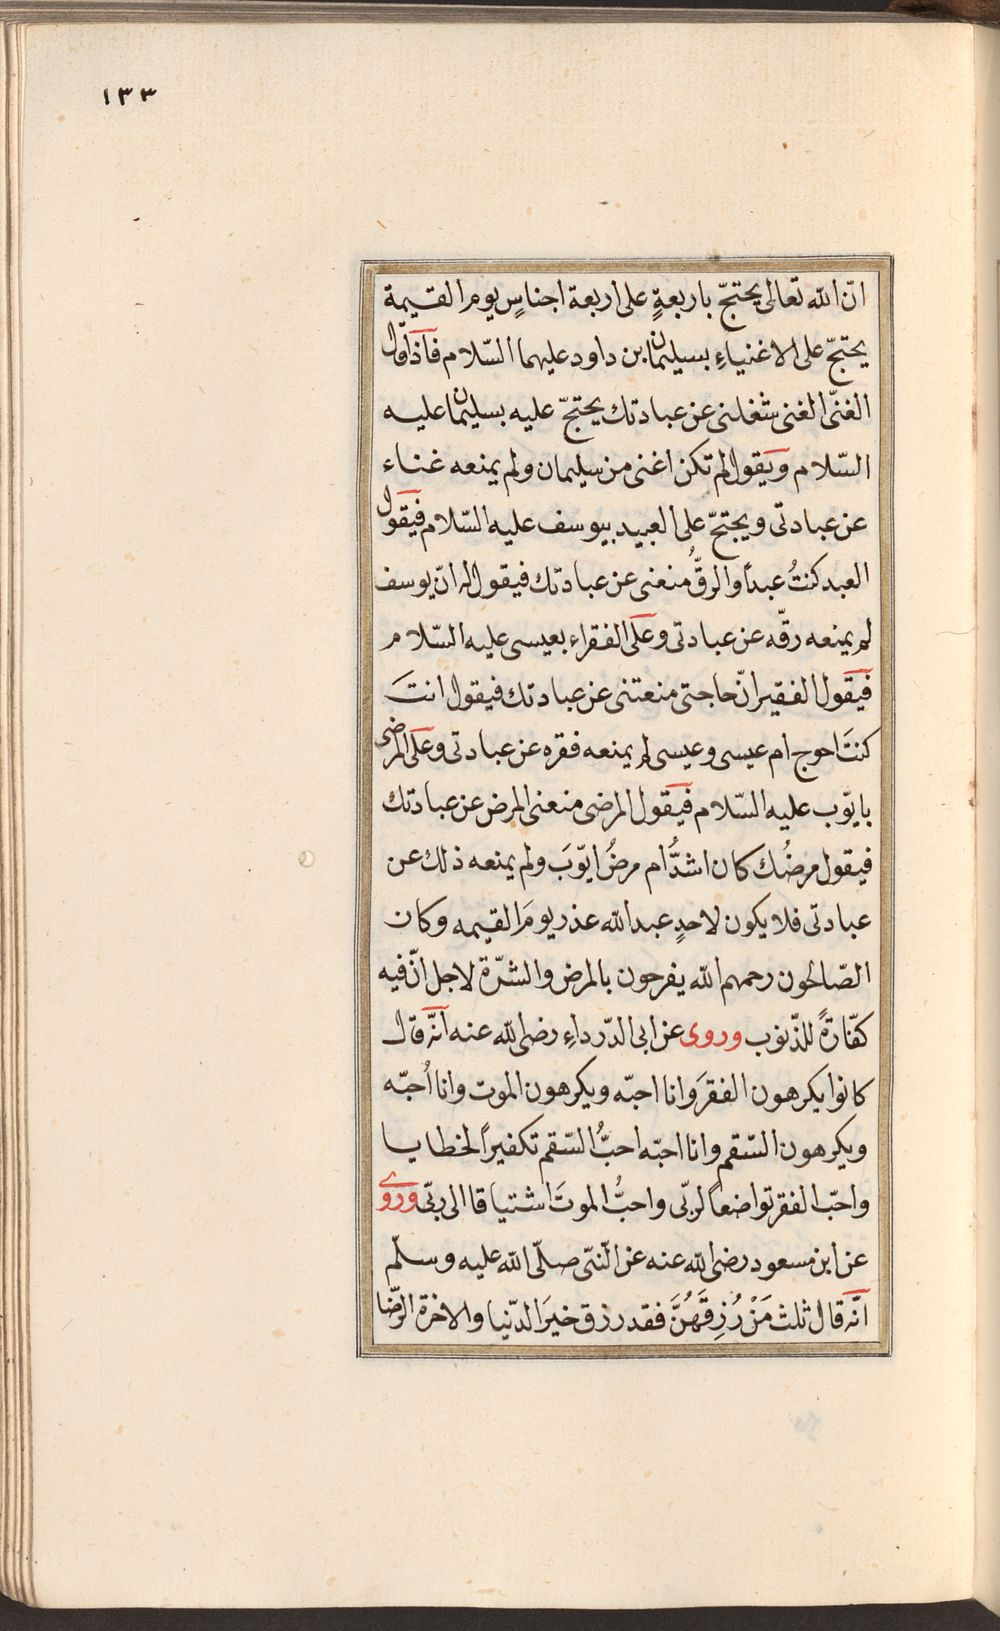 ١٣٣
انّ الله تعالى يحتجّ باربعةٍ على اربعة اجناسٍ يوم القيمة
يحتجّ على الاغنياءِ بسليمان ابن داود عليهما السّلام فاذا قال
الغنّى الغنى شغلنى عن عبادتك يحتجّ عليه بسليمان عليه
السّلام ويقول لم تكن اغنى من سليمان ولم يمنعه غناء
عن عبادتى ويحتجّ على العبيد بيوسف عليه السّلام فيقول
العبد كنتُ عبداً والرقُّ منعنى عن عبادتك فيقول له انّ يوسف
لم يمنعه رقّه عن عبادتى وعلى الفقراء بعيسى عليه السّلام
فيقول الفقير انّ حاجتى منعتنى عن عبادتك فيقول انتَ
كنتَ احوج ام عيسى وعيسى لم يمنعه فقره عن عبادتى وعلى المرضى
بايّوب عليه السّلام فيقول المرضى منعنى المرض عن عبادتك
فيقول مرضُك كان اشدُّ ام مرضُ ايّوبَ ولم يمنعه ذلك عن
عبادتى فلا يكون لاحدٍ عبد الله عذر يومَ القيمه وكان
الصّالحون رحمهم الله يفرحون بالمرض والشدّة لاجل انّ فيه
كفّارةً للذّنوب وروى عن ابى الدّرداءِ رضى الله عنه انّه قال
كانوا يكرهون الفقرَ وانا احبّه ويكرهون الموت وانا اُحبّه
ويكرهون السّقم وانا احبّه احبُّ السّقم تكفيراً لخطايا
واحبّ الفقر تواضعاً لربّى واحبُّ الموتَ اشتياقا الى ربّى وروى
عن ابن مسعود رضى الله عنه عن النّبىّ صلّى الله عليه وسلّم
انّه قال ثلث مَنْ رُزِقَهُنَّ فقد رزق خيرَ الدّنيا والاخرة الرّضا